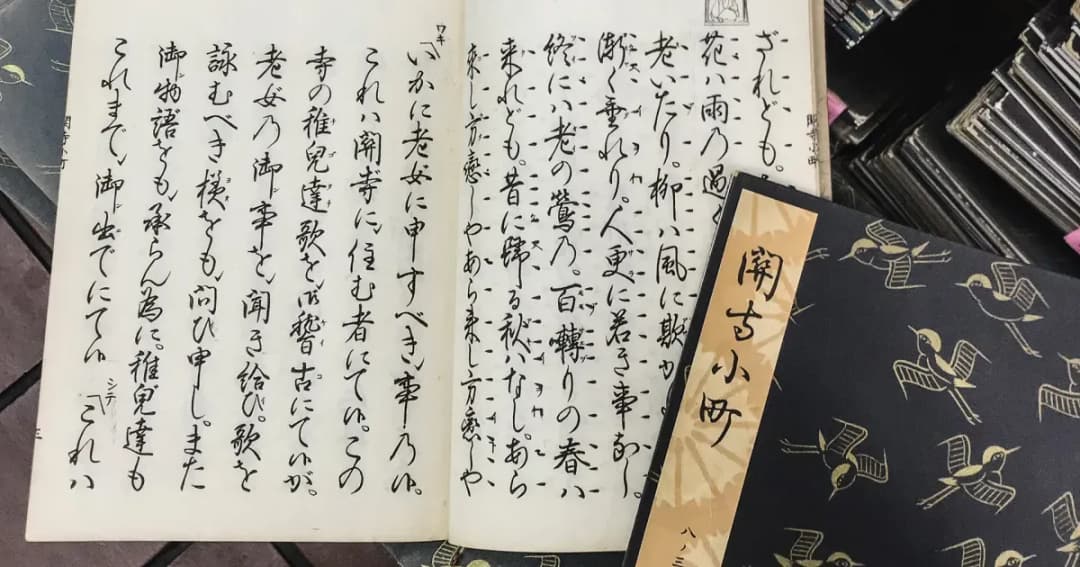 ざれども。
花ハ雨乃過
老いたり。柳ハ風に欺か
漸く垂れり。人更に若き事なし。
終にハ老の鶯乃。百囀りの春ハ
来れども。昔に歸る秋ハなし。あら
来し方戀しやあら来し方戀しや
ワキ いかに老女に申すべき事乃候。
これハ關寺に住む者にて候。この
寺の稚兒達歌を御稽古にて候が。
老女乃御事を聞き給ひ。歌を
詠むべき様をも問ひ申し。また
御物語をも承らん為に。稚兒達も
これまで御出でにて候 シテ これハ
關寺小町
三
關寺小町
八ノ三